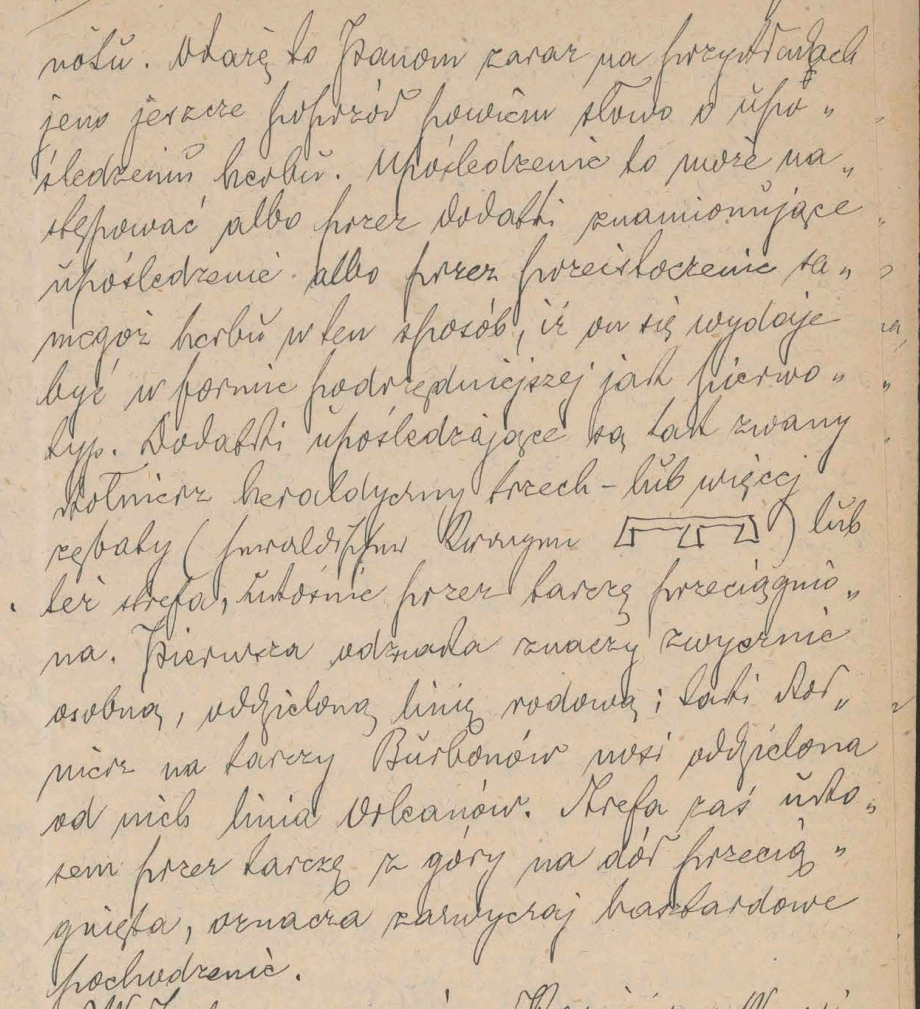 nótu. Okażę to Panom zaraz na przykładach
jeno jeszcze poprzód powiem słowo o upo„
śledzeniu herbu. Upośledzenie to może na„
stępować albo przez dodatki znamionujące
upośledzenie albo przez przeistoczenie sa„
megoż herbu w ten sposób, iż on się wydaje
być w formie podrzędniejszej jak pierwo„
typ. Dodatki upośledzające są tak zwany
kołnierz heraldyczny trzech-lub więcej
zębaty (heraldischer Kragen ) lub
też strefa, ukośnie przez tarczę przeciągnio„
na. Pierwsza odznaka znaczy zwycznie
osobną, oddzieloną linię rodową; taki koł„
nierz na tarczy Burbonów nosi oddzielona
od nich linia Orleanów. Strefa zaś uko„
sem przez tarczę z góry na dół przecią„
gnięta, oznacza zazwyczaj bastardowe
pochodzenie.